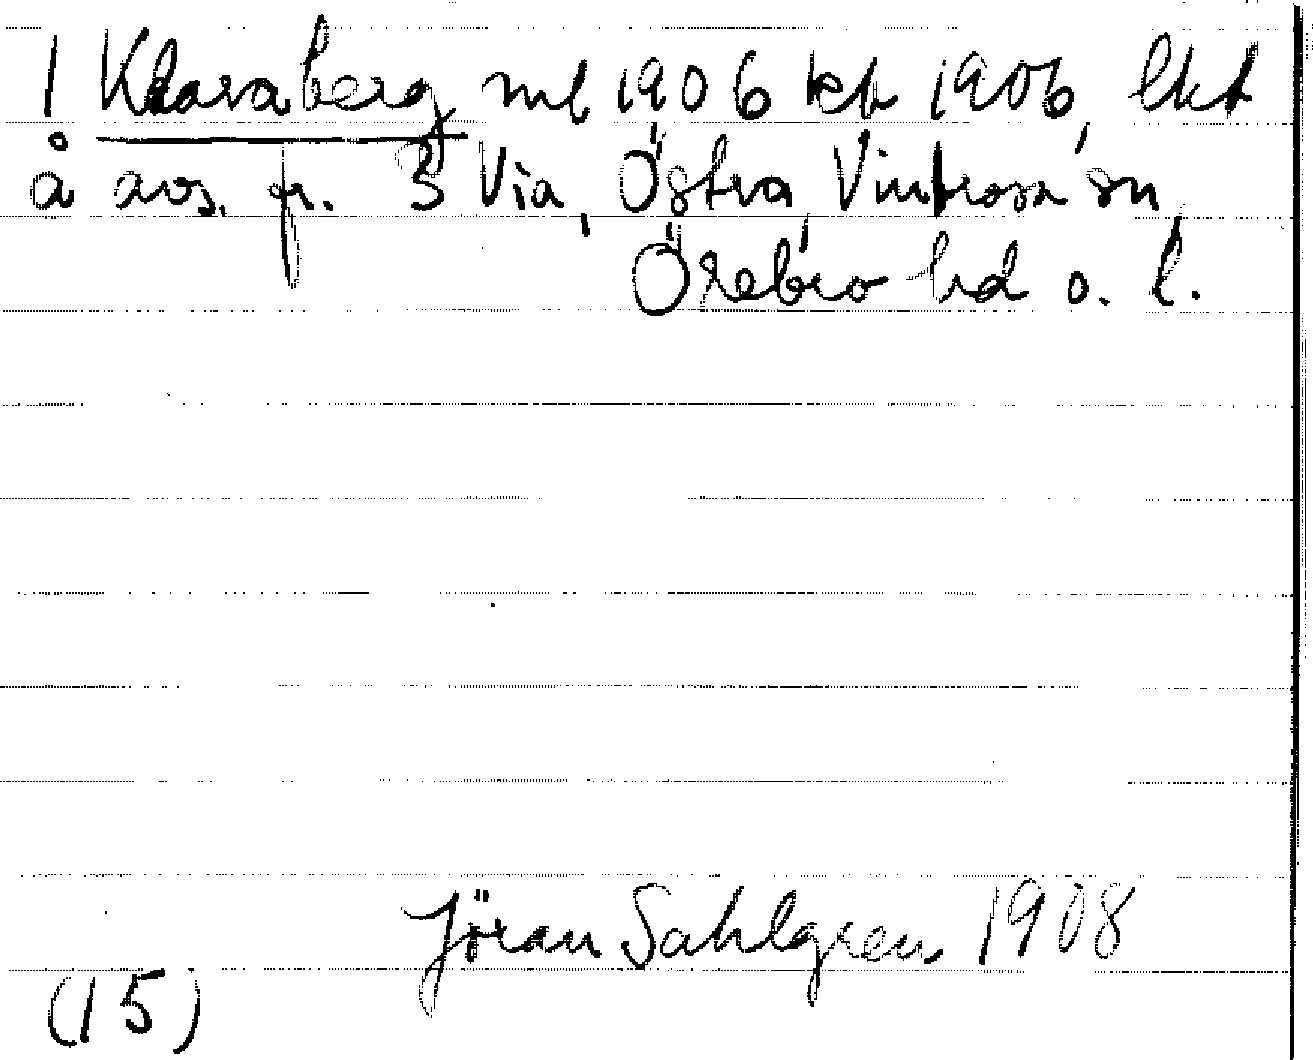 1 Klaraberg ml 1906 kb 1906, lht
å avs. fr. 3 Via, Östra Vintrosa sn,
Örebro hd o. l.
Jöran Sahlgren 1908
(15)